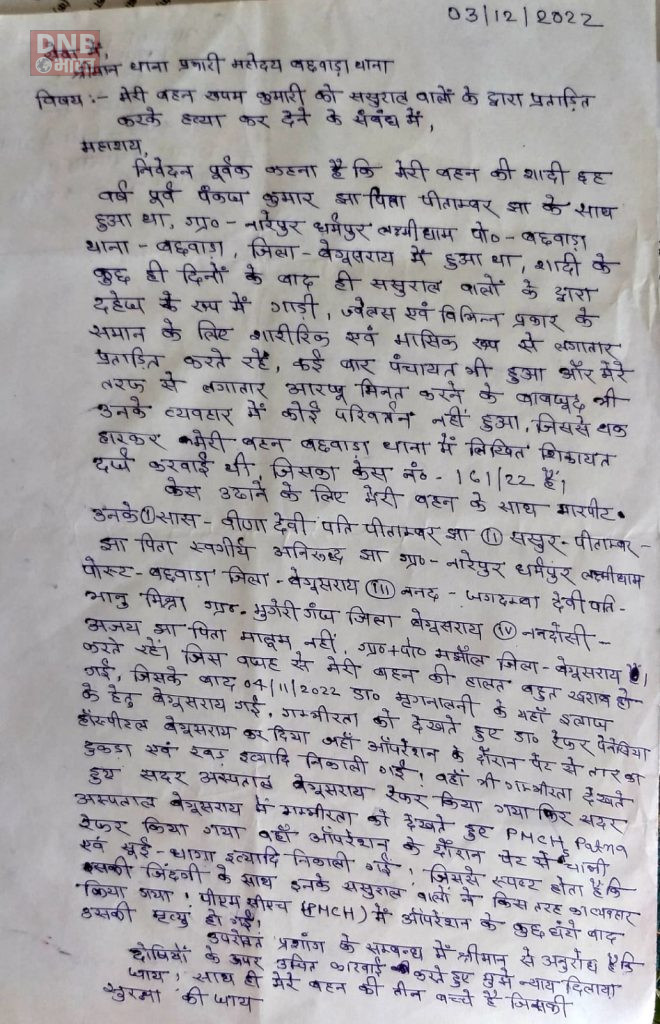 03/12/2022
DNB
भारत
सेवा में,
श्रीमान थाना प्रभारी महोदय बछवाड़ा थाना
विषय:- मेरी बहन रूपम कुमारी को ससुराल वालों के द्वारा प्रताड़ित
करके हत्या कर देने के संबंध में,
महाशय,
निवेदन पूर्वक कहना है कि मेरी बहन की शादी छह
वर्ष पूर्व पंकज कुमार झा पिता पीताम्बर झा के साथ
हुआ था, ग्रा०- नारेपुर धर्मपुर लक्ष्मीधाम पो०- बछवाड़ा
थाना - बछवाड़ा, जिला- बेगूसराय में हुआ था, शादी के
कुछ ही दिनों के बाद ही ससुराल वालों के द्वारा
दहेज के रूप में गाड़ी, ज्वेलस एवं विभिन्न प्रकार के
समान के लिए शारीरिक एवं मासिक रूप से लगातार
प्रताड़ित करते रहें, कई बार पंचायत भी हुआ और मेरे
तरफ से लगातार आरजू मिनत करने के बावजूद भी
उनके व्यवहार में कोई परिवर्तन नहीं हुआ, जिससे थक
हारकर मेरी बहन बछवाड़ा थाना में लिखित शिकायत
दर्ज करवाई थी, जिसका केस नं०- 161/22 है।
केस उठाने के लिए मेरी बहन के साथ मारपीट.
उनके (I) सास- वीणा देवी पति पीताम्बर झा (II) ससुर- पीताम्बर-
झा पिता स्वर्गीय अनिरूद्ध झा ग्रा०- नारेपुर धर्मपुर लक्ष्मीधाम
पोस्ट- बछवाड़ा जिला- बेगूसराय (III) ननद- जगदम्बा देवी पति-
भानु मिश्रा ग्रा०- मुंगेरी गंज जिला बेगूसराय (IV) ननदोंसी-
अजय झा पिता मालूम नहीं, ग्रा०+पो० मझौल जिला- बेगूसराय
करते रहें। जिस वजह से मेरी बहन की हालत बहुत खराब हो
गई, जिसके बाद 04/11/2022 डा० मृगनालनी के यहाँ इलाज
के हेतु बेगूसराय गई, गम्भीरता को देखते हुए डा० रेफर
हॉस्पीटल बेगूसराय कर दिया जहाँ ऑपरेशन के दौरान पेट से तार का
टुकडा एवं रबड़ इत्यादि निकाली गई। वहाँ भी गम्भीरता देखते
हुए सदर अस्पताल बेगूसराय रेफर किया गया फिर सदर
अस्पताल बेगूसराय में गम्भीरता को देखते हुए PMCH, Patna
रेफर किया गया वहाँ ऑपरेशन के दौरान पेट से
एवं सूई-धागा इत्यादि निकाली गई। जिससे स्पष्ट होता है कि
उसकी जिंदगी के साथ इनके ससुराल वालों ने किस तरह का व्यवहार
किया गया। पीएम सीएच (PMCH) में ऑपरेशन के कुछ घंटों बाद
उसकी मृत्यु हो गई।
उपरोक्त प्रशांग के सम्बन्ध में श्रीमान से अनुरोध है कि
दोषियों के ऊपर उचित कारवाई करते हुए मुझे न्याय दिलाया
जाय। साथ ही मेरे बहन की तीन बच्चे हैं जिसकी
सुरक्षा की जाय